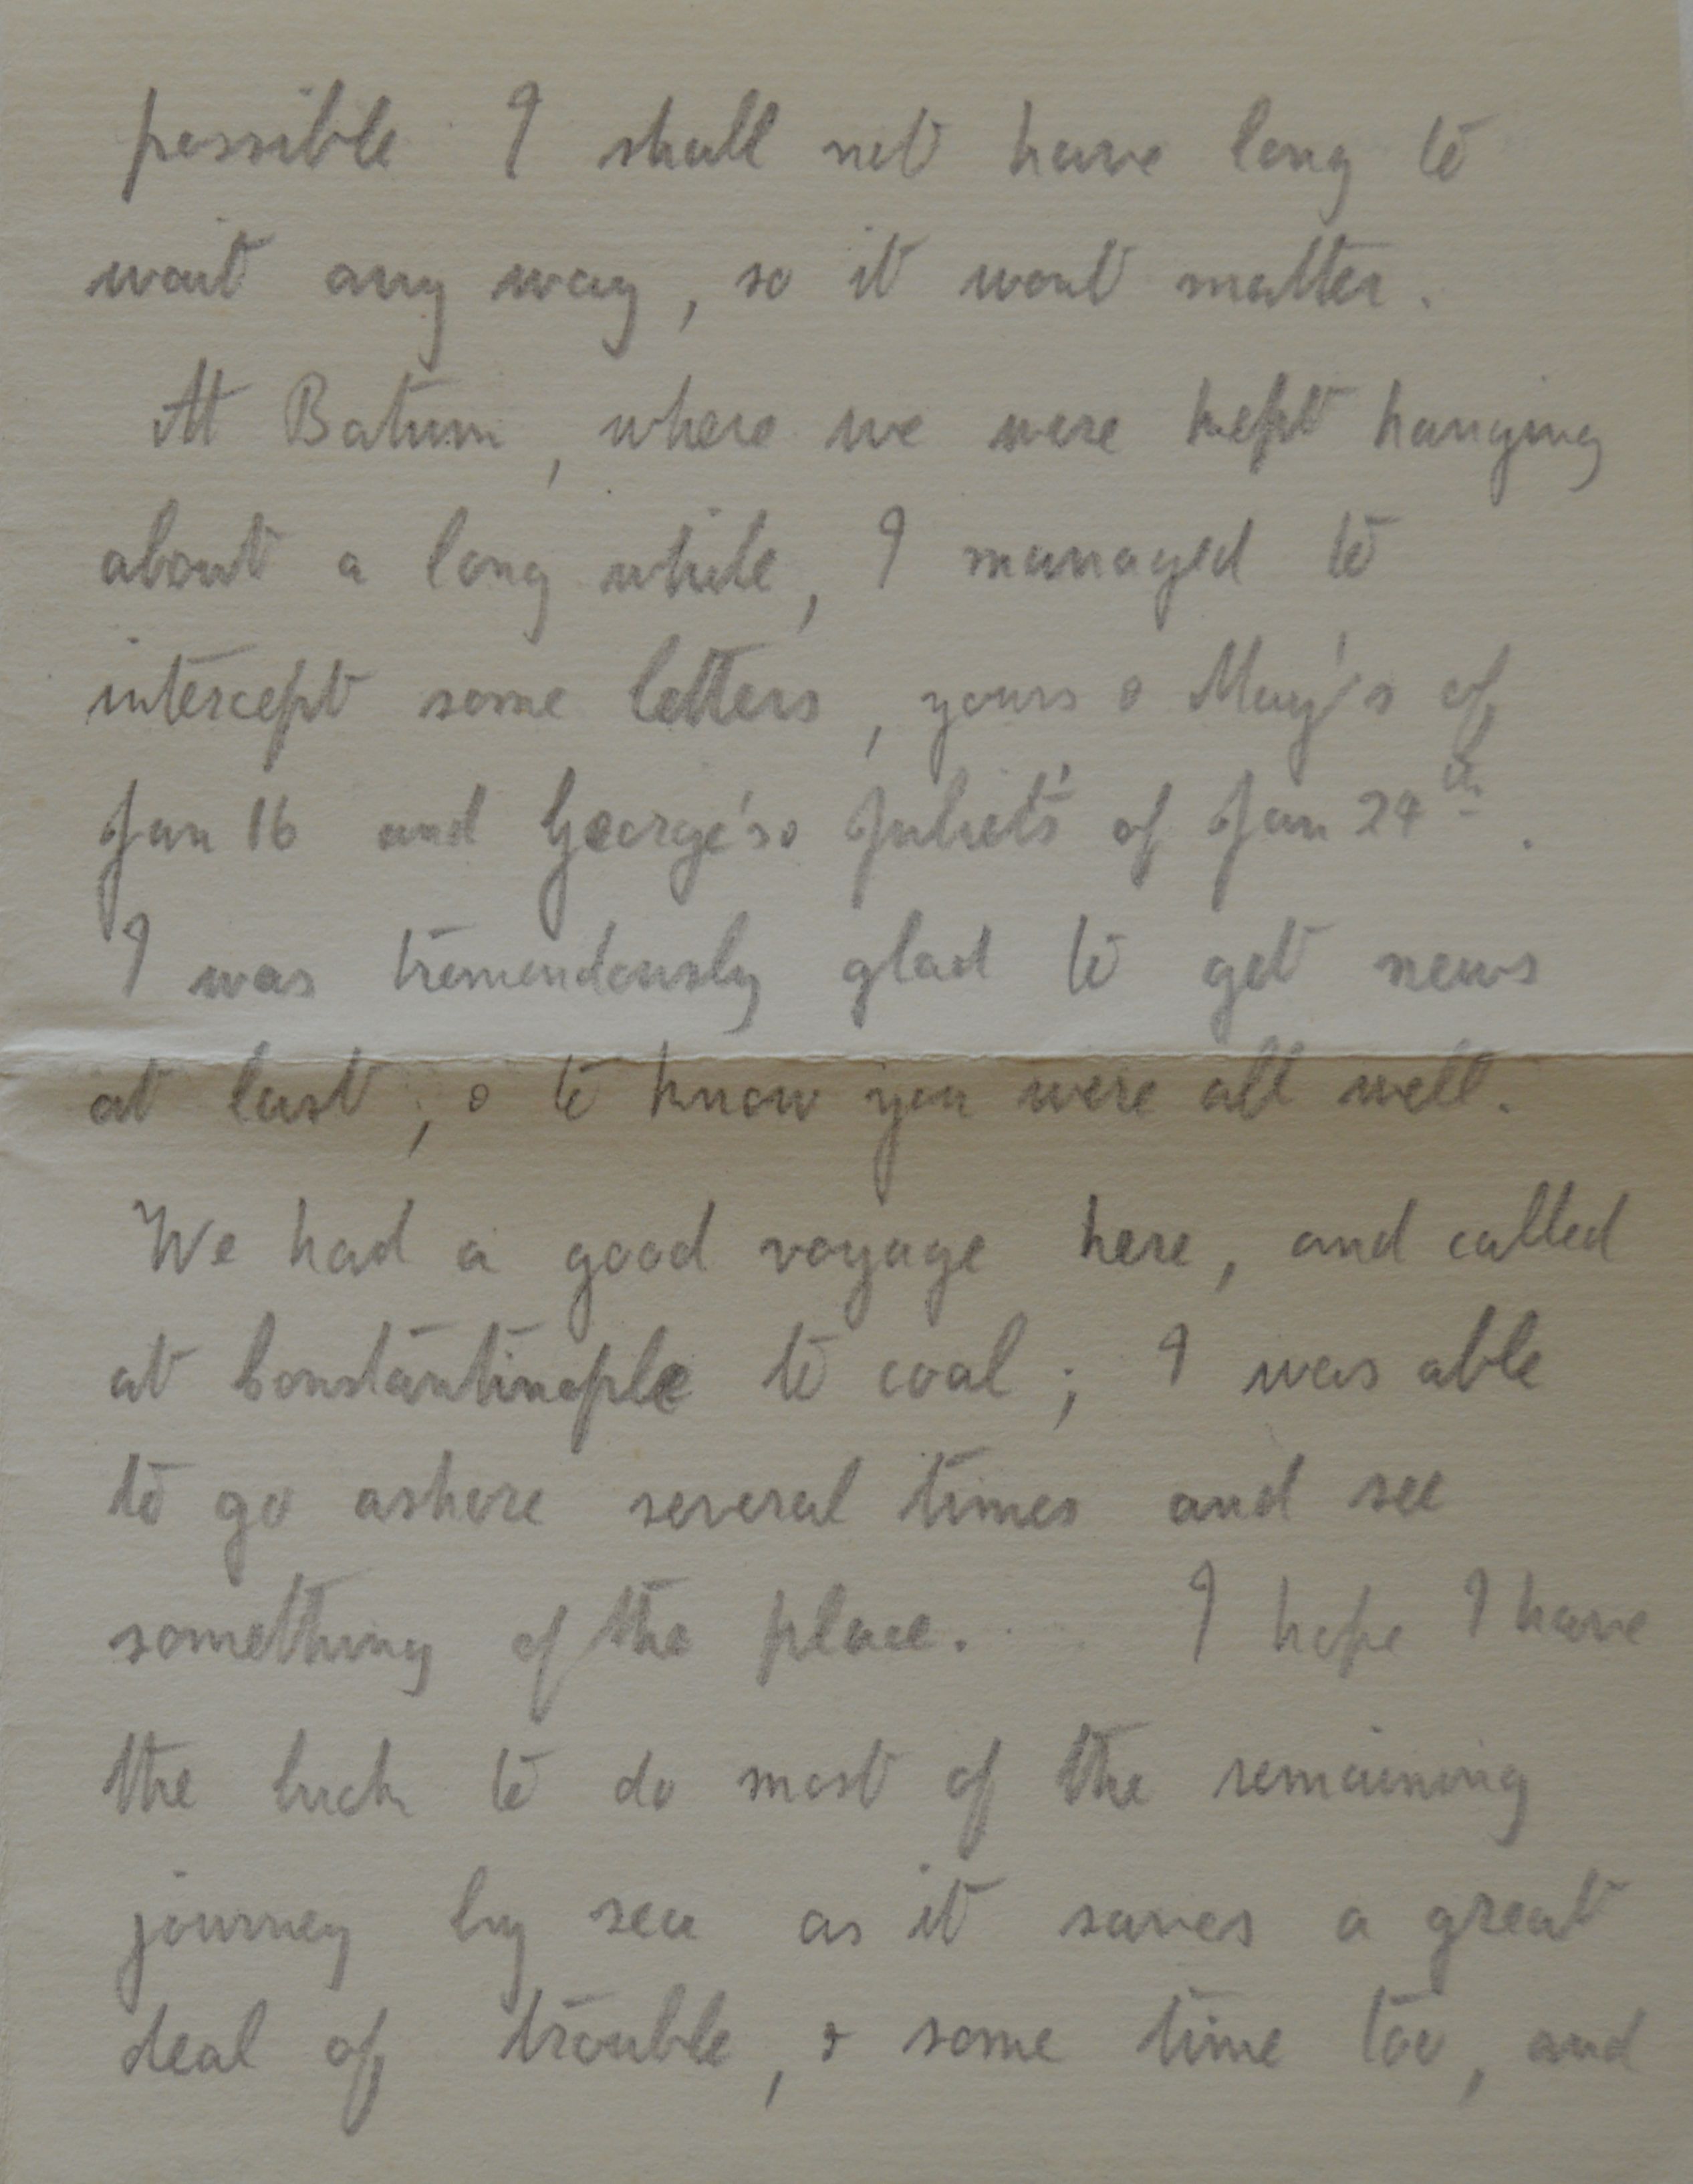 possible I shall not have long to
wait any way, so it wont matter.
At Batum, where we were kept hanging
about a long while, I managed to
intercept some letters, yours & May's of
Jan 16 and George's & Juliet's of Jan 24th.
I was tremendously glad to get news
at last, & to know you were all well.
We had a good voyage here, and called
at Constantinople to coal; I was able
to go ashore several times and see
something of the place. I hope I have
the luck to do most of the remaining
journey by sea as it saves a great
deal of trouble, & some time too, and